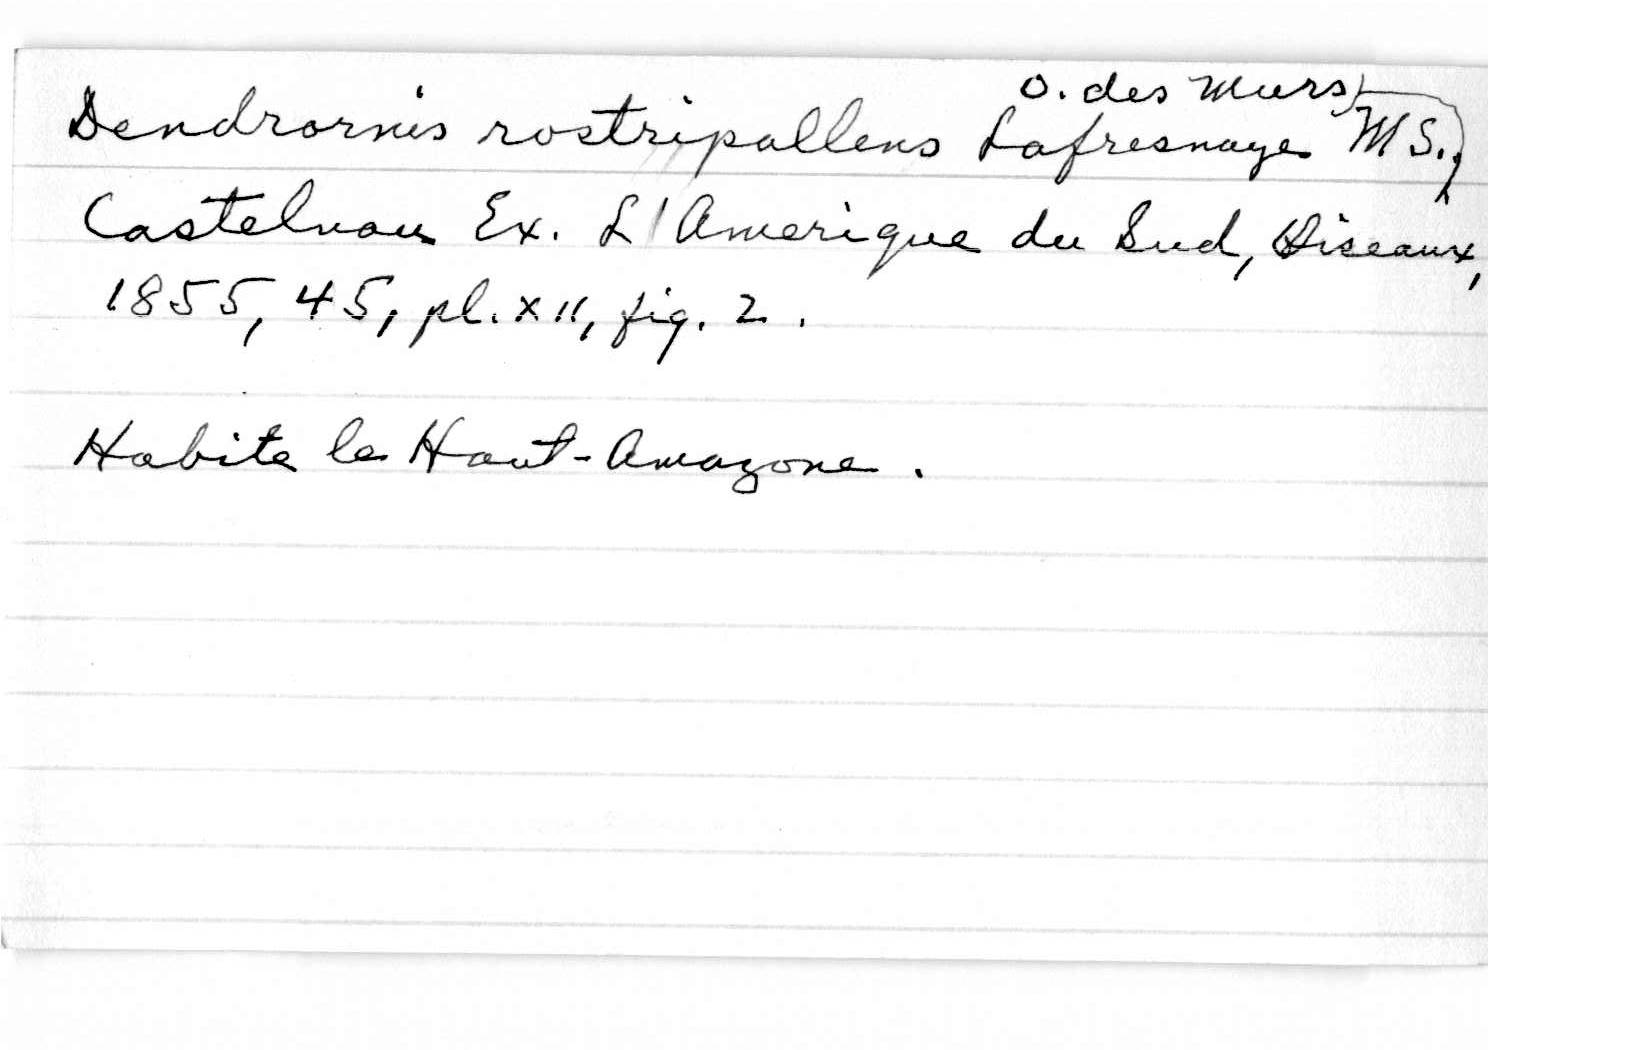 Dendrornis rostripallens Lafresnaye MS.,
O. des Murs,
Castelnau Ex. L'Amerique du Sud, Oiseaux,
1855, 45, pl. XII, fig. 2.
Habite le Haut-Amazone.